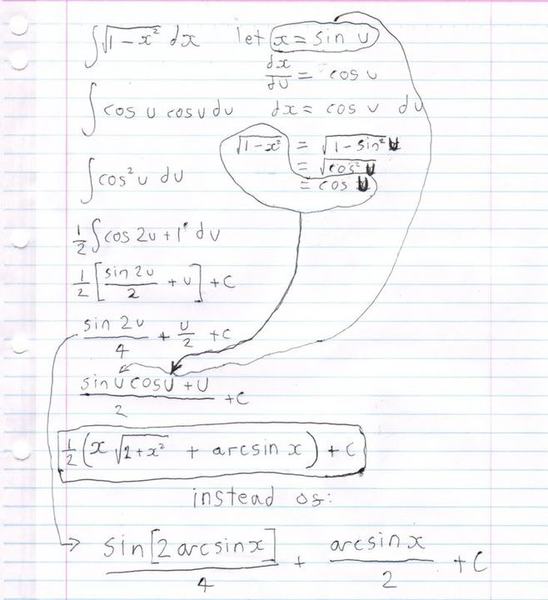 ∫√(1-x²) dx let x = sin u
dx/du = cos u
∫cos u cos u du dx = cos u du
√(1-x²) = √(1-sin² u)
= √(cos² u)
= cos u
∫cos² u du
1/2 ∫cos 2u + 1 du
1/2 [sin 2u/2 + u] + C
sin 2u/4 + u/2 + C
(sin u cos u + u)/2 + C
1/2 (x √(1+x²) + arcsin x) + C
instead of:
sin[2 arcsin x]/4 + arcsin x/2 + C